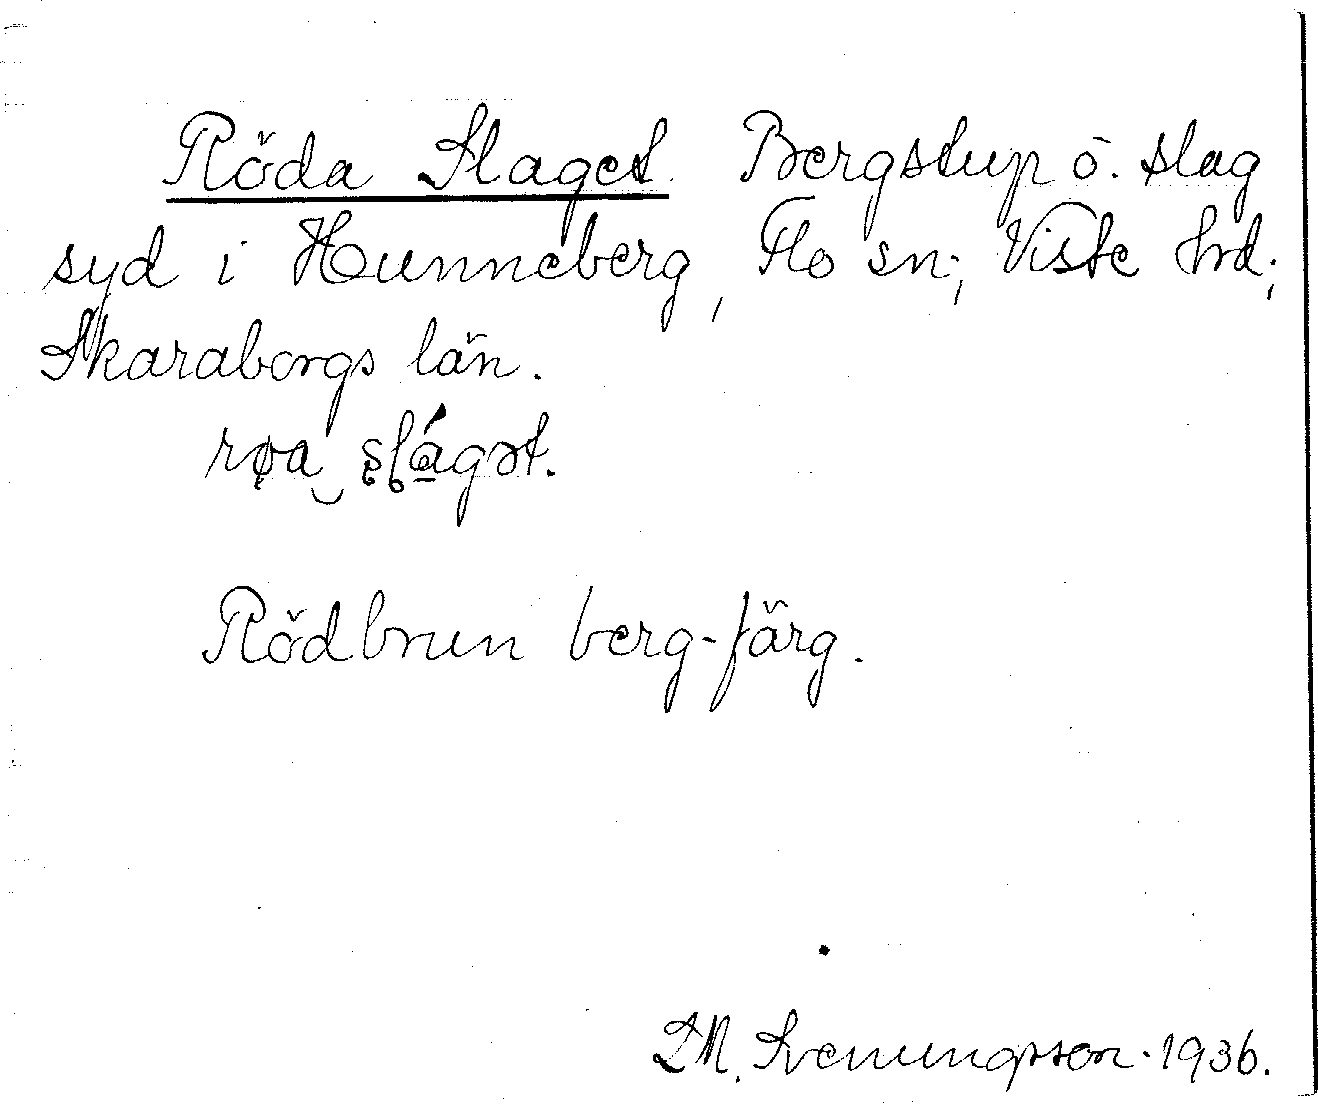 Röda Slaget. Bergstup ö. slag
syd i Hunneberg, Flo sn; Viste hrd;
Skaraborgs län.
Rödbrun berg-färg.
D.M. Svenungsson. 1936.